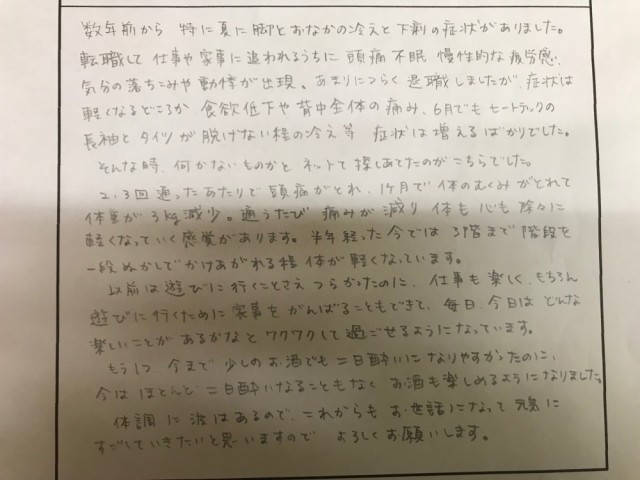 数年前から 特に夏に脚とおなかの冷えと下痢の症状がありました。
転職して 仕事や家事に追われるうちに 頭痛 不眠 慢性的な疲労感、
気分の落ちこみや動悸が出現。あまりにつらく 退職しましたが、症状は
軽くなるどころか 食欲低下や背中全体の痛み、6月でもヒートテックの
長袖とタイツが脱げない程の冷え等 症状は増えるばかりでした。
そんな時、何かないものかと ネットで探しあてたのがこちらでした。
2.3回通ったあたりで頭痛がとれ、1ヶ月で体のむくみがとれて
体重が3kg減少。通うたび 痛みが減り 体も心も徐々に
軽くなっていく感覚があります。半年経った今では 3階まで階段を
一段ぬかしでかけあがれる程 体が軽くなっています。
以前は遊びに行くことさえつらかったのに、仕事も楽しく、もちろん
遊びに行くために家事をがんばることもできて、毎日、今日は どんな
楽しいことがあるかなと ワクワクして過ごせるようになっています。
もう1つ、今まで少しのお酒でも二日酔いになりやすかったのに、
今は ほとんど二日酔いなることもなく お酒も楽しめるようになりました。
体調に波はあるので、これからも お世話になって 元気に
すごしていきたいと思いますので よろしくお願いします。